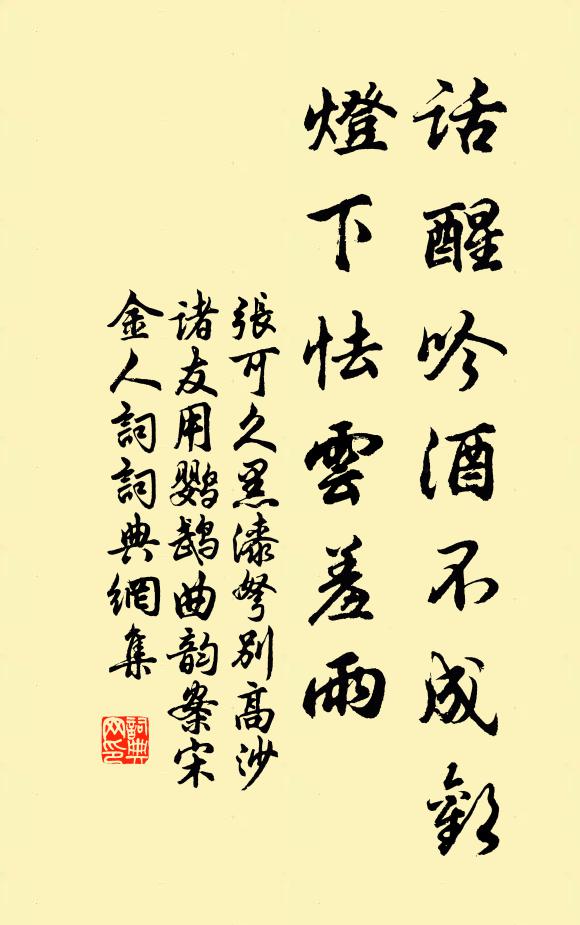 话醒吟酒不成歡
燈下怯雲羞雨
張可久黑漆弩别高沙
诸友用鹦鹉曲韵案宋
金人詞詞典網集
詞典网印